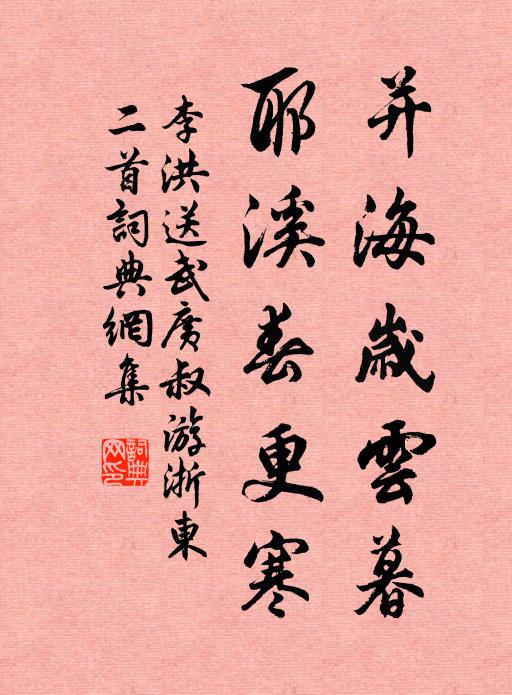 并海歲雲暮
耶溪春更寒
李洪送武賡叔游浙東
二首詞典網集
詞典網印